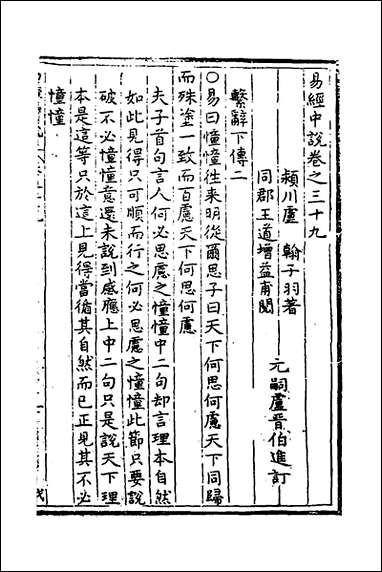 易經中說卷之三十九
潁川盧　翰子羽著
同郡王道增益甫閱
元嗣盧晉伯進訂
繫辭下傳二
○易曰憧憧往來明從爾思子曰天下何思何慮天下同歸
而殊塗一致而百慮天下何思何慮
夫子首句言人何必思慮之憧憧中二句却言理本自然
如此見得只可順而行之何必思慮之憧憧此節只要說
破不必憧憧意還未說到感應上中二句只是說天下理
本是這等只於這上見得當循其自然而已正見其不必
憧憧